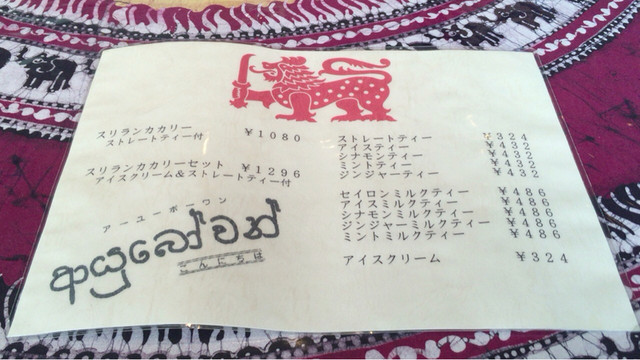 スリランカカリー ¥1080
ストレートティー付
スリランカカリーセット ¥1296
アイスクリーム&ストレートティー付
アーユーボーワン
ආයුබෝවන්
こんにちは
ストレートティー ¥324
アイスティー ¥432
シナモンティー ¥432
ミントティー ¥432
ジンジャーティー ¥432
セイロンミルクティー ¥486
アイスミルクティー ¥486
シナモンミルクティー ¥486
ジンジャーミルクティー ¥486
ミントミルクティー ¥486
アイスクリーム ¥324